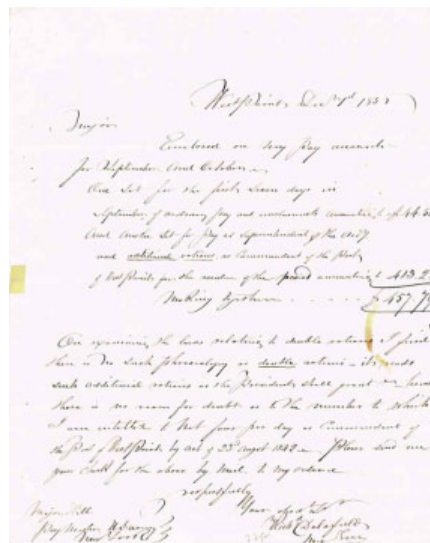 West Point, Dec 7th 1858
Major
Enclosed are my pay accounts
for September and October
One set for the first seven days in
September of ordinary pay and emoluments amounting to $44.
And another set for pay as Superintendent of the
and additional rations as Commandant of the Post
of West Point for the of the period amounting to 413.2
Making together - - - - - $457.7
On examining the laws relating to double rations I find
there is no such phraseology as double rations - it reads
such additional rations as the President shall grant
there is no room for doubt as to the number to which
I am entitled to four per day as Commandant of
the Post of West Point by act of 23d August 1842 - Please send me
your check for the above by mail to my
respectfully
Your
Major Hill
Rich Delafield
Pay Master U.S. Army
New York